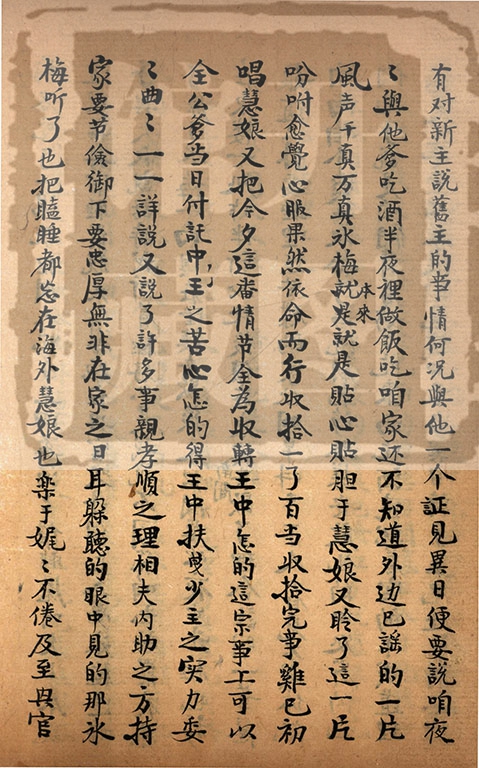 有对新主說舊主的事情何况與他一个証見異日便要說咱夜
〻與他爹吃酒半夜裡做飯吃咱家还不知道外边已謡的一片
風声千真万真氷梅就是本來就是貼心貼胆于慧娘又聆了這一片
吩咐愈覺心服果然依命而行收拾一了百当收拾完事雞已初
唱慧娘又把今夕這畨情节全為收轉王中怎的這宗事上可以
全公爹当日付託中王之苦心怎的得王中扶曳少主之实力委
〻曲〻一一詳說又說了許多事親孝順之理相夫内助之方持
家要节儉御下要忠厚無非在家之日耳躲聽的眼中見的那氷
梅听了也把瞌睡都忘在海外慧娘也楽于娓〻不倦及至與官